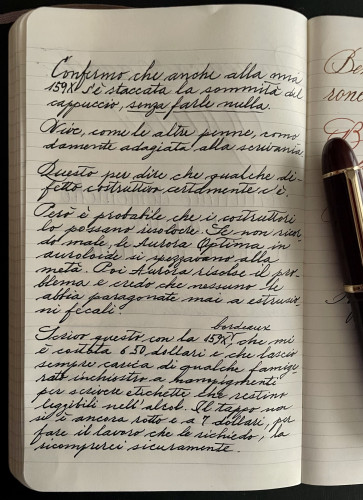 Confermo che anche alla mia
159X s'è staccata la sommità del
cappuccio, senza farle nulla.
Vive, come le altre penne, como
damente adagiata alla scrivania.
Questo per dire che qualche di-
fetto costruttivo certamente c'è.
Però è probabile che i costruttori
lo possano risolvere. Se non ricor-
do male, le Aurora Optima in
auroloide si spezzavano alla
metà. Poi Aurora risolse il pro-
blema e credo che nessuno le
abbia paragonate mai a estrusio-
ni fecali.
bordeaux
Scrivo questo con la 159X, che mi
è costata 6.50 dollari e che lascio
sempre carica di qualche famige
rato inchiostro a
per scrivere etichette che restino
leggibili nell'alcol. Il tappo non
si è ancora rotto e, a 7 dollari, per
fare il lavoro che le richiedo, la
ricomprerei sicuramente.